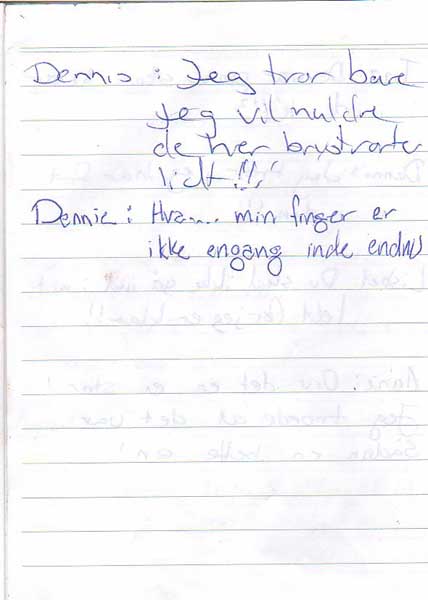 Dennis : Jeg tror bare
Jeg vil nuldre
de her brystvorter
lidt!!!
Dennis : Hva.... min finger er
ikke engang inde endnu